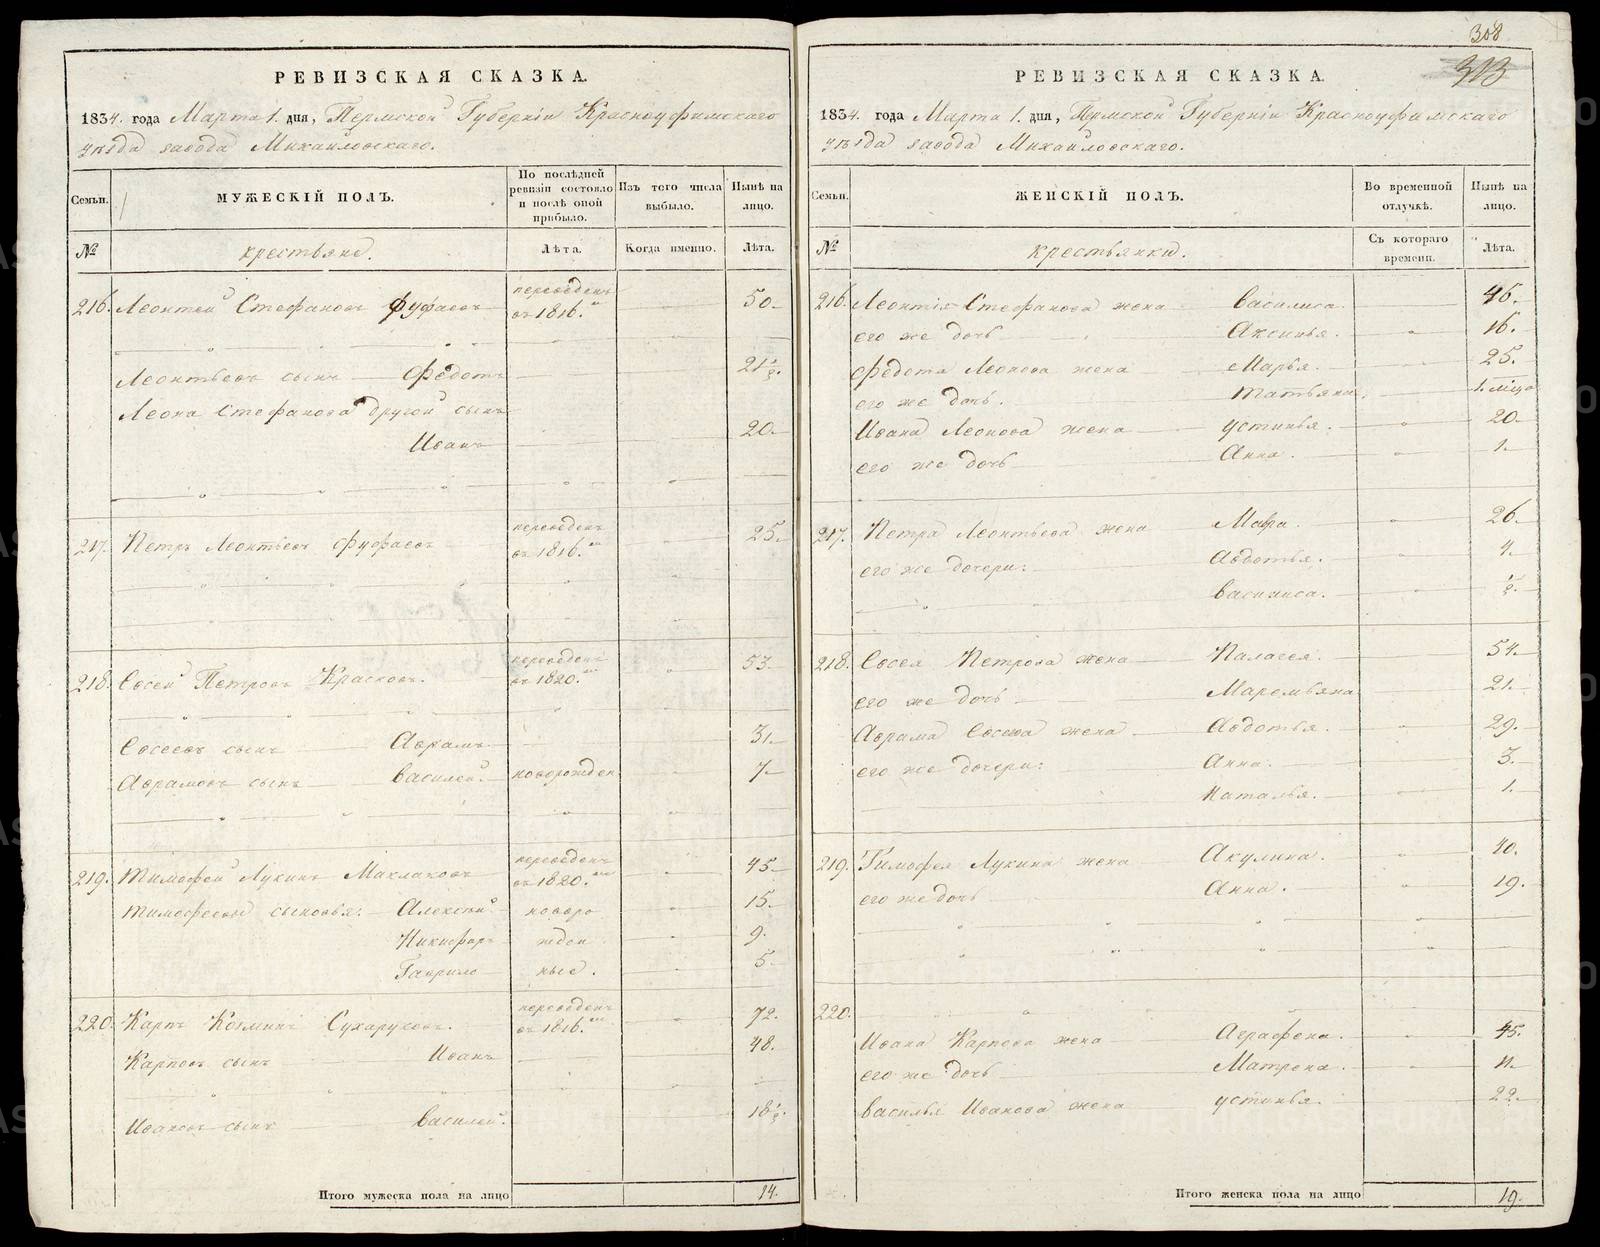 РЕВИЗСКАЯ СКАЗКА.
1834. года Марта 1. дня, Пермской Губернiи Красноуфимскаго
уѣзда завода Михайловскаго.
Семьи. МУЖЕСКIЙ ПОЛЪ. По послѣдней ревизiи состояло и послѣ оной прибыло. Изъ того числа выбыло. Нынѣ на лицо.
№ крестьяне. Лѣта. Когда именно. Лѣта.
216. Леонтей Стефановъ Фуфаевъ переведенъ въ 1816.мъ 50.
Леонтьевъ сынъ Федотъ 21½.
Леона Стефанова другой сынъ
Иванъ 20.
217. Петръ Леонтьевъ Фуфаевъ переведенъ въ 1816.мъ 25.
218. Евсей Петровъ Красковъ. переведенъ въ 1820.мъ 53.
Евсеевъ сынъ Аврамъ 31.
Аврамовъ сынъ Василей. новорожден 7.
219. Тимофей Лукинъ Маклаковъ переведенъ въ 1820.мъ 45.
Тимофеевы сыновья: Алексѣй новоро 15.
Никифоръ жден 9.
Гаврило ные. 5.
220. Карпъ Козминъ Сухаруковъ. переведенъ въ 1816.мъ 72.
Карповъ сынъ Иванъ 48.
Ивановъ сынъ Василей. 18½.
Итого мужеска пола на лицо 14.
308
313
РЕВИЗСКАЯ СКАЗКА.
1834. года Марта 1. дня, Пермской Губернiи Красноуфимскаго
уѣзда завода Михайловскаго.
Семьи. ЖЕНСКIЙ ПОЛЪ. Во временной отлучкѣ. Нынѣ на лицо.
№ крестьянки. Съ котораго времени. Лѣта.
216. Леонтiя Стефанова жена Василиса. 46.
его же дочь Аксинья. 16.
Федота Леонова жена Марья. 25.
его же дочь. Татьяна. 1. мѣсца
Ивана Леонова жена Устинья. 20.
его же дочь Анна. 1.
217. Петра Леонтьева жена Мавра. 26.
его же дочери: Авдотья. 4.
Василиса. ½.
218. Евсея Петрова жена Палагея. 54.
его же дочь Маремьяна 21.
Аврама Евсева жена Авдотья. 29.
его же дочери: Анна. 3.
Наталья. 1.
219. Тимофея Лукина жена Акулина. 40.
его же дочь Анна. 19.
220.
Ивана Карпова жена Аграфена. 45.
его же дочь Матрена. 11.
Василья Иванова жена Устинья. 22.
Итого женска пола на лицо 19.